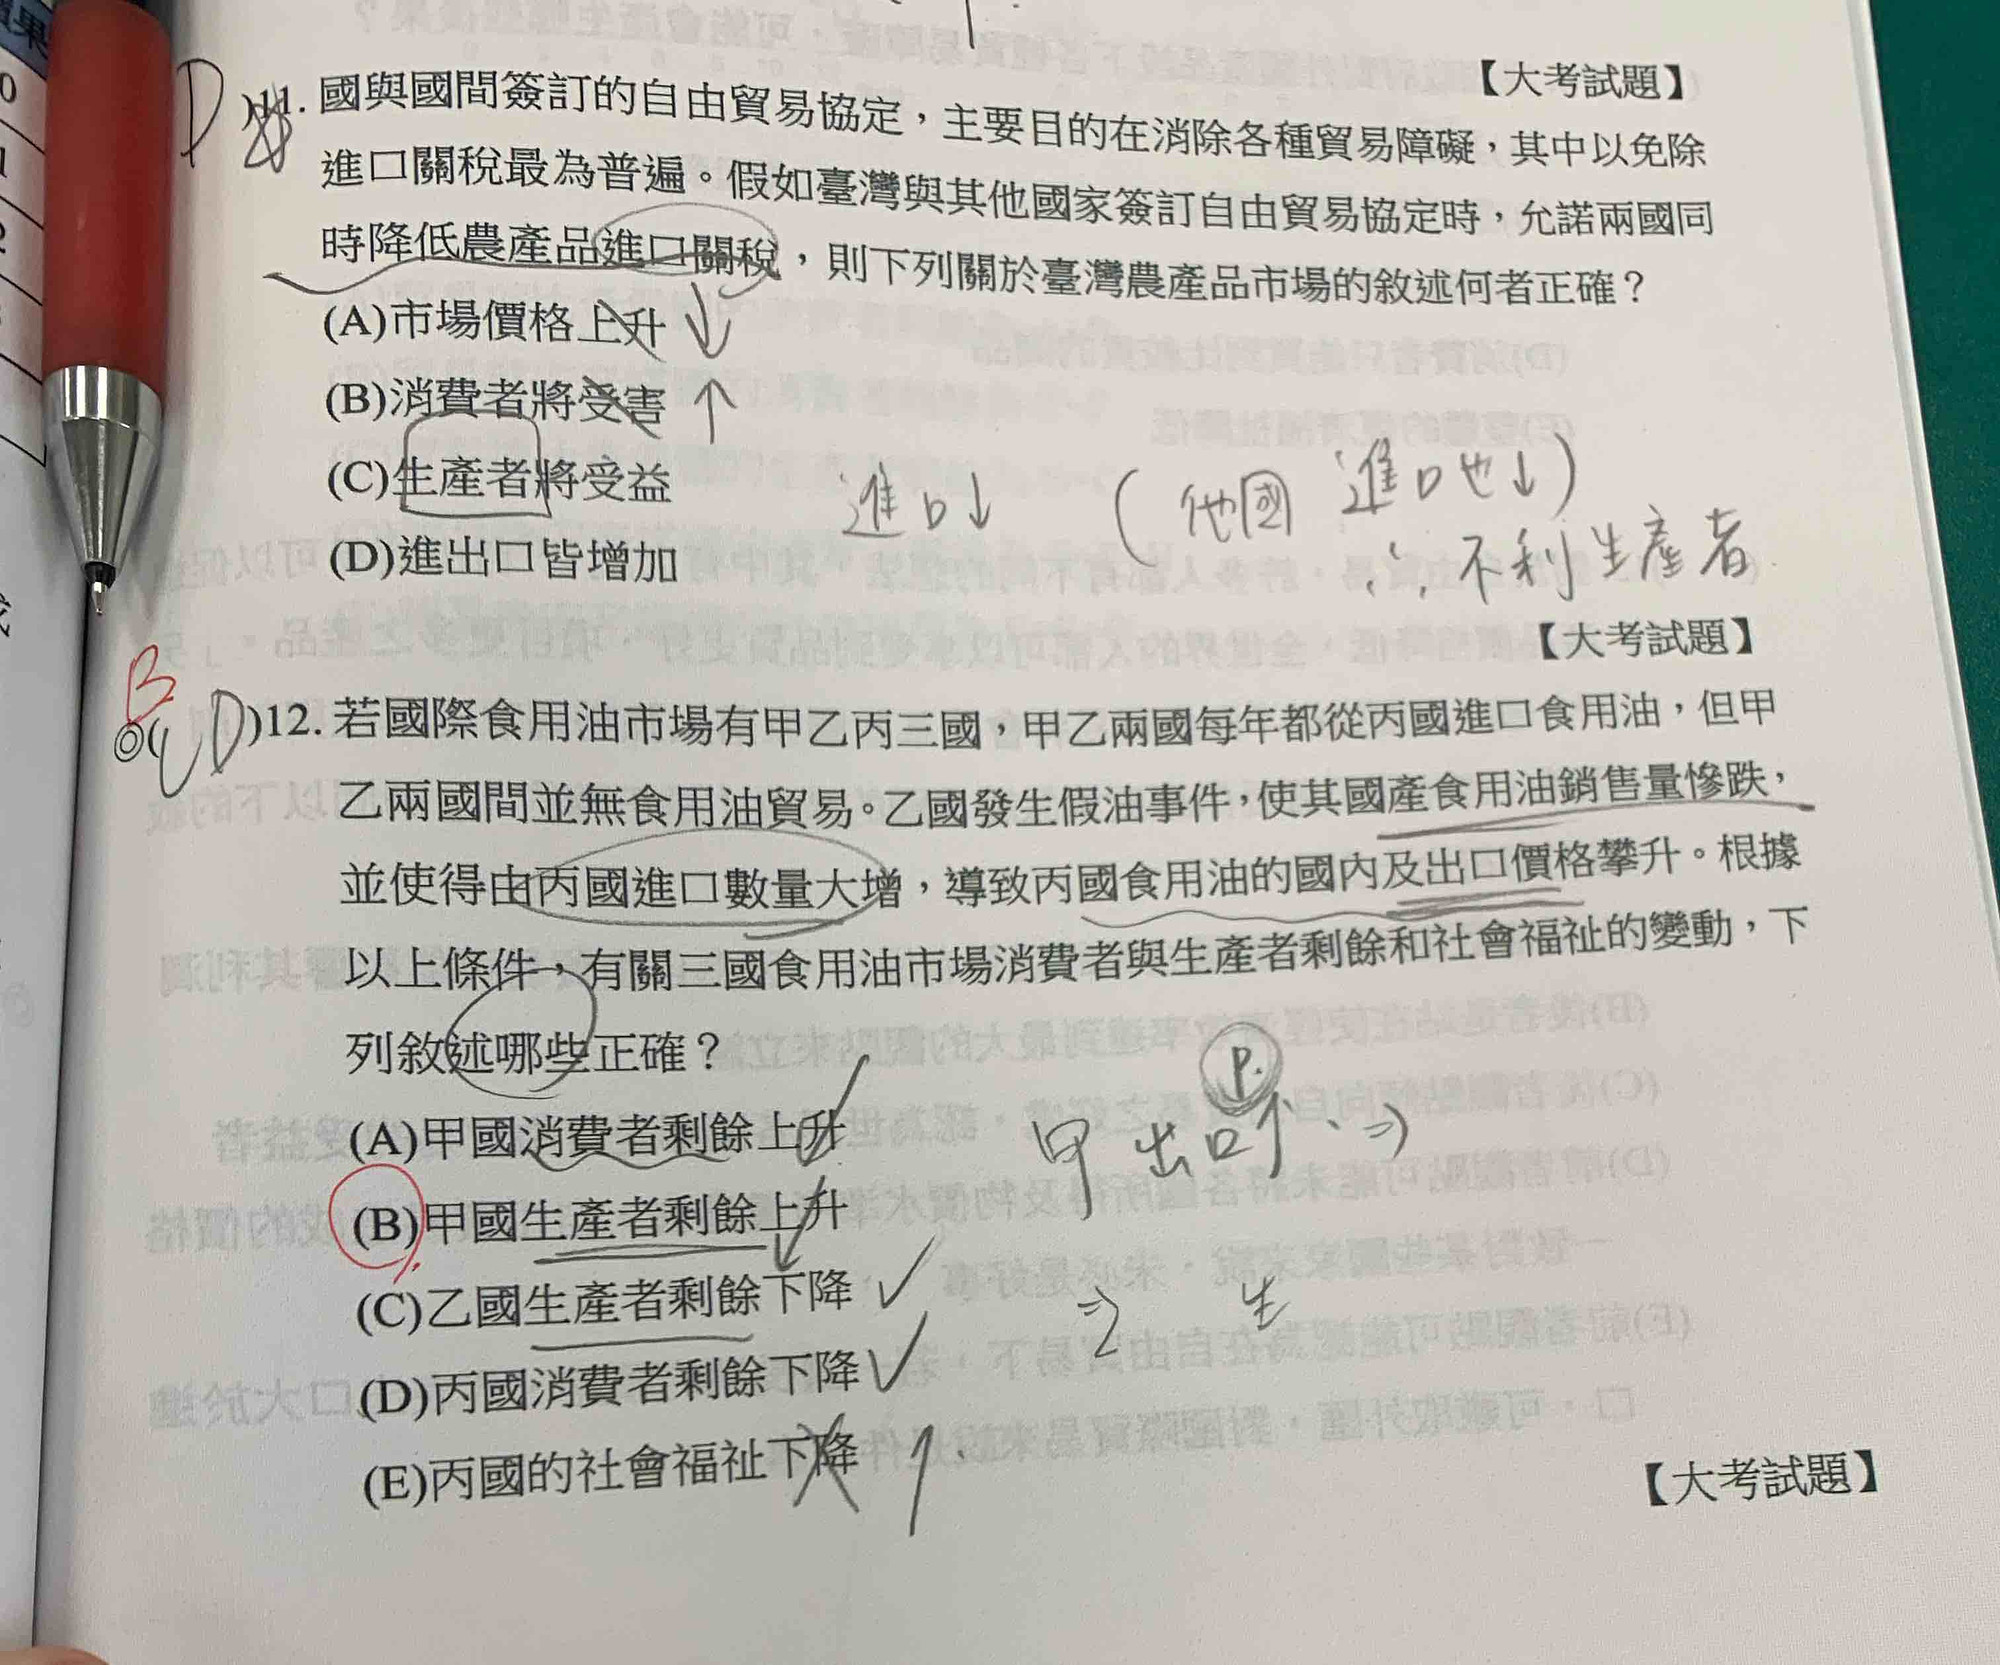 【大考試題】
D )11. 國與國間簽訂的自由貿易協定，主要目的在消除各種貿易障礙，其中以免除
進口關稅最為普遍。假如臺灣與其他國家簽訂自由貿易協定時，允諾兩國同
時降低農產品進口關稅，則下列關於臺灣農產品市場的敘述何者正確？
(A)市場價格上升 ↓
(B)消費者將受害 ↑
(C)生產者將受益 進口↓ (他國進口也↓)
∴不利生產者
(D)進出口皆增加
【大考試題】
B
◎(CD)12. 若國際食用油市場有甲乙丙三國，甲乙兩國每年都從丙國進口食用油，但甲
乙兩國間並無食用油貿易。乙國發生假油事件，使其國產食用油銷售量慘跌，
並使得由丙國進口數量大增，導致丙國食用油的國內及出口價格攀升。根據
以上條件，有關三國食用油市場消費者與生產者剩餘和社會福祉的變動，下
列敘述哪些正確？
P.
(A)甲國消費者剩餘上升 甲出口↑⇒
(B)甲國生產者剩餘上升
(C)乙國生產者剩餘下降 ✓ ⇒ 生
(D)丙國消費者剩餘下降 ✓
(E)丙國的社會福祉下降 ↑
【大考試題】